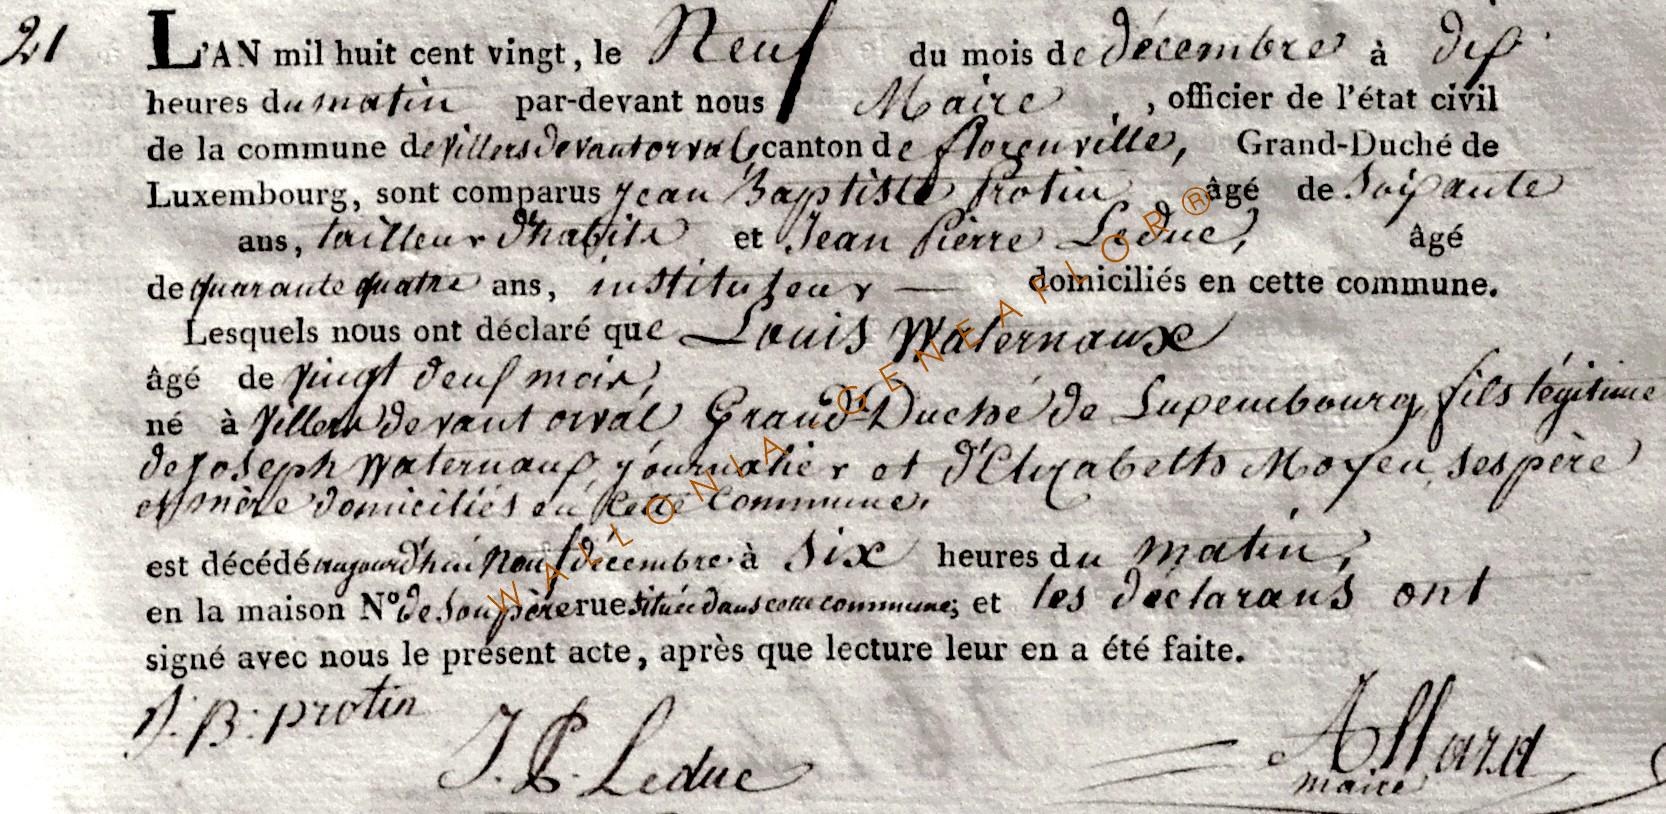 21
L'AN mil huit cent vingt, le Neuf du mois de décembre à dix
heures du matin par-devant nous Maire, officier de l'état civil
de la commune de Villersdevantorval, canton de florenville, Grand-Duché de
Luxembourg, sont comparus jean Baptiste protin âgé de soixante
ans, tailleur d'habits et Jean Pierre Leduc, âgé
de quarante quatre ans, instituteur — domiciliés en cette commune.
Lesquels nous ont déclaré que Louis Waternaux
âgé de vingt deux mois,
né à Villers devant orval Grand-Duché de Luxembourg, fils légitime
de joseph Waternaux, journalier et d'Elizabeth Moyen, ses père
et mère domiciliés en cette commune,
est décédé aujourd'hui neuf décembre à six heures du matin,
en la maison N° de son père rue située dans cette commune; et les déclarans ont
signé avec nous le présent acte, après que lecture leur en a été faite.
J. B. protin
J. P. Leduc
Allard
maire
WALLONIA GENEAFLOR®